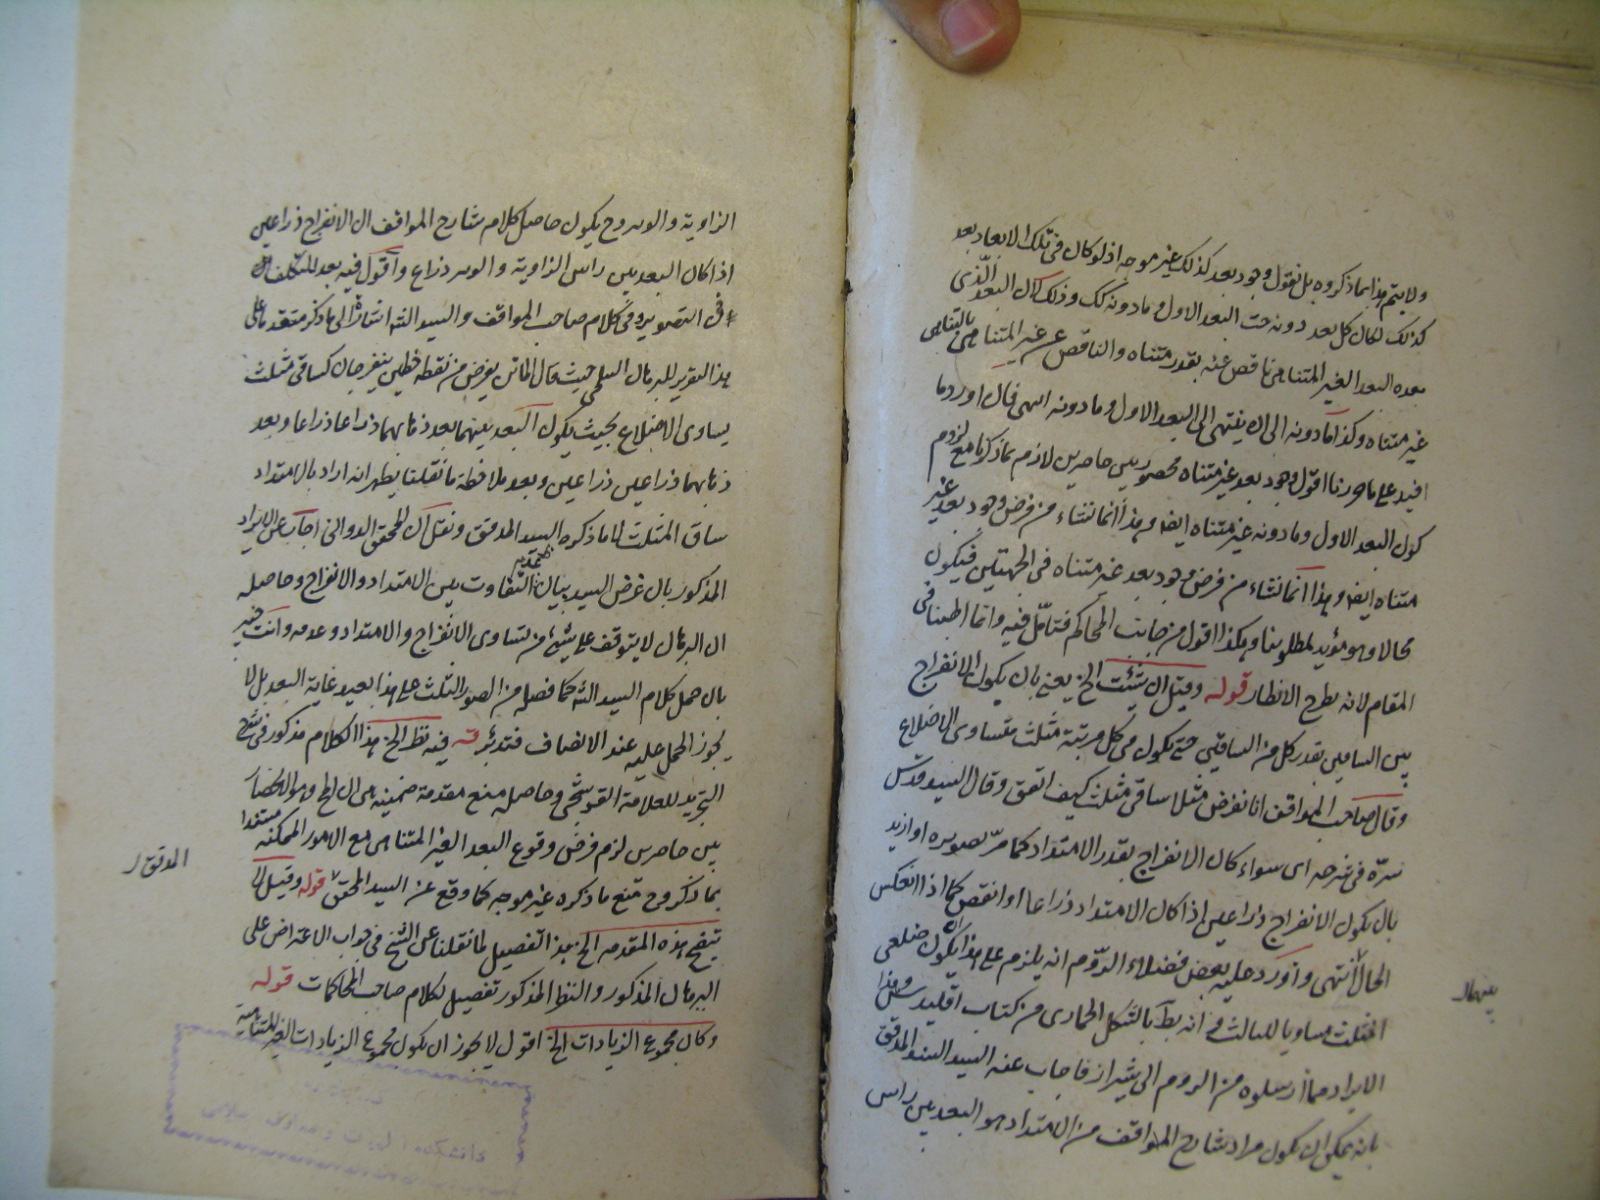 ولا يتم هذا بما ذكروه بل نقول وجود بعد كذلك غير موجه اذ لو كان في تلك الابعاد بعد
كذلك لكان كل بعد دونه حتى البعد الاول وما دونه كك وذلك لان البعد الذي
بعده البعد الغير المتناهي ناقص عنه بقدر متناه والناقص عن غير المتناهي بالمتناهي
غير متناه وكذا ما دونه الى ان ينتهي الى البعد الاول وما دونه انتهى فان اورد ما
افيد على ما حررنا اقول وجود بعد غير متناه محصور بين حاصرين لازم بما ذكرنا مع لزوم
كون البعد الاول وما دونه غير متناه ايضا وهذا انما نشاء من فرض وجود بعد غير
متناه ايضا وهذا انما نشاء من فرض وجود بعد غير متناه في الجهتين فيكون
محالا وهو مؤيد لمطلوبنا وهكذا اقول من جانب المحاكم فتأمل فيه وانما اطنبنا في
المقام لانه مطرح الانظار قوله وقيل ان شئت الخ يعني بان يكون الانفراج
بين الساقين بقدر كل من الساقين حتى يكون في كل مرتبة مثلث متساوي الاضلاع
وقال صاحب المواقف انا نفرض مثلا ساقي مثلث كيف اتفق وقال السيد قدس
سره في شرحه اى سواء كان الانفراج بقدر الامتداد كما مر تصويره او ازيد
بان يكون الانفراج ذراعين اذا كان الامتداد ذراعا او انقص كما اذا انعكس
الحال انتهى واورد عليه بعض فضلاء الروم انه يلزم على هذا ان يكون ضلعي
المثلث مساويا للثالث مع انه بط بالشكل الحماري من كتاب اقليدس وهذا
الايراد مما ارسلوه من الروم الى شيراز فاجاب عنه السيد السند المدقق
بانه يمكن ان يكون مراد شارح المواقف من الامتداد هو البعد بين راس
الزاوية والوسر وح يكون حاصل كلام شارح المواقف ان الانفراج ذراعين
اذا كان البعد بين راس الزاوية والوسر ذراع واقول فيه بعد للتكلف
في التصوير في كلام صاحب المواقف والسيد الشه اشارة الى ما ذكر متقدما على
هذا التقرير للبرهان السلمي حيث قال الماتن يفرض من نقطة خطين ينفرجان كساقي مثلث
يساوى الاضلاع بحيث يكون البعد بينهما بعد ذهابهما ذراعا ذراعا وبعد
ذهابهما ذراعين ذراعين وبعد ملاحظة ما نقلنا يظهر انه اراد بالامتداد
ساق المثلث لا ما ذكره السيد المدقق ونقل ان المحقق الدواني اجاب عن الايراد
المذكور بان غرض السيد بيان التفاوت بين الامتداد والانفراج وحاصله
ان البرهان لا يتوقف على شئ من تساوى الانفراج والامتداد وعدمه وانت خبير
بان حمل كلام السيد الشه كما فصله من الصور الثلث على هذا بعيد غاية البعد بل لا
يجوز الحمل عليه عند الانصاف فتدبر قه فيه نظر الخ هذا الكلام مذكور في شرح
التجريد للعلامة القوشجي وحاصله منع مقدمة ضمنية هي ان الح وهو الانحصار
بين حاصرين لزم فرض وقوع البعد الغير المتناهي مع الامور الممكنة مستندا
بما ذكر وح منع ما ذكره غير موجه كما وقع عن السيد المحقق قوله وقيل لا
تنقح هذه المقدمه الخ هذا تفصيل لما نقلنا عن الشيخ في جواب الاعتراض على
البرهان المذكور والنظر المذكور تفصيل لكلام صاحب المحاكمات قوله
وكان مجموع الزيادات الخ اقول لا يجوز ان يكون مجموع الزيادات الغير المتناهية
المدقق